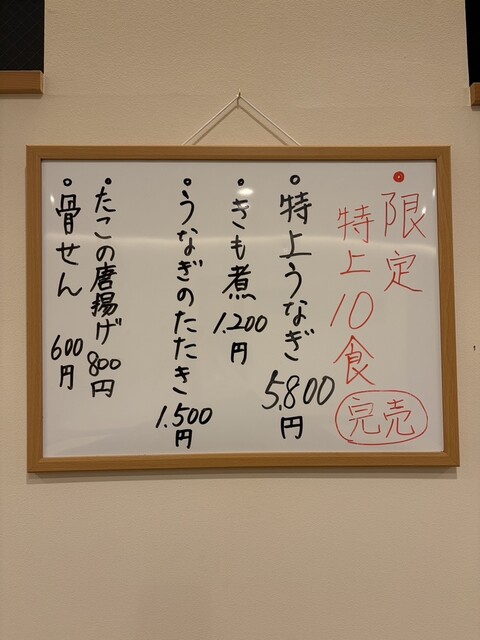 限定
特上10食
完売
特上うなぎ 5,800円
きも煮 1,200円
うなぎのたたき 1,500円
たこの唐揚げ 800円
骨せん 600円